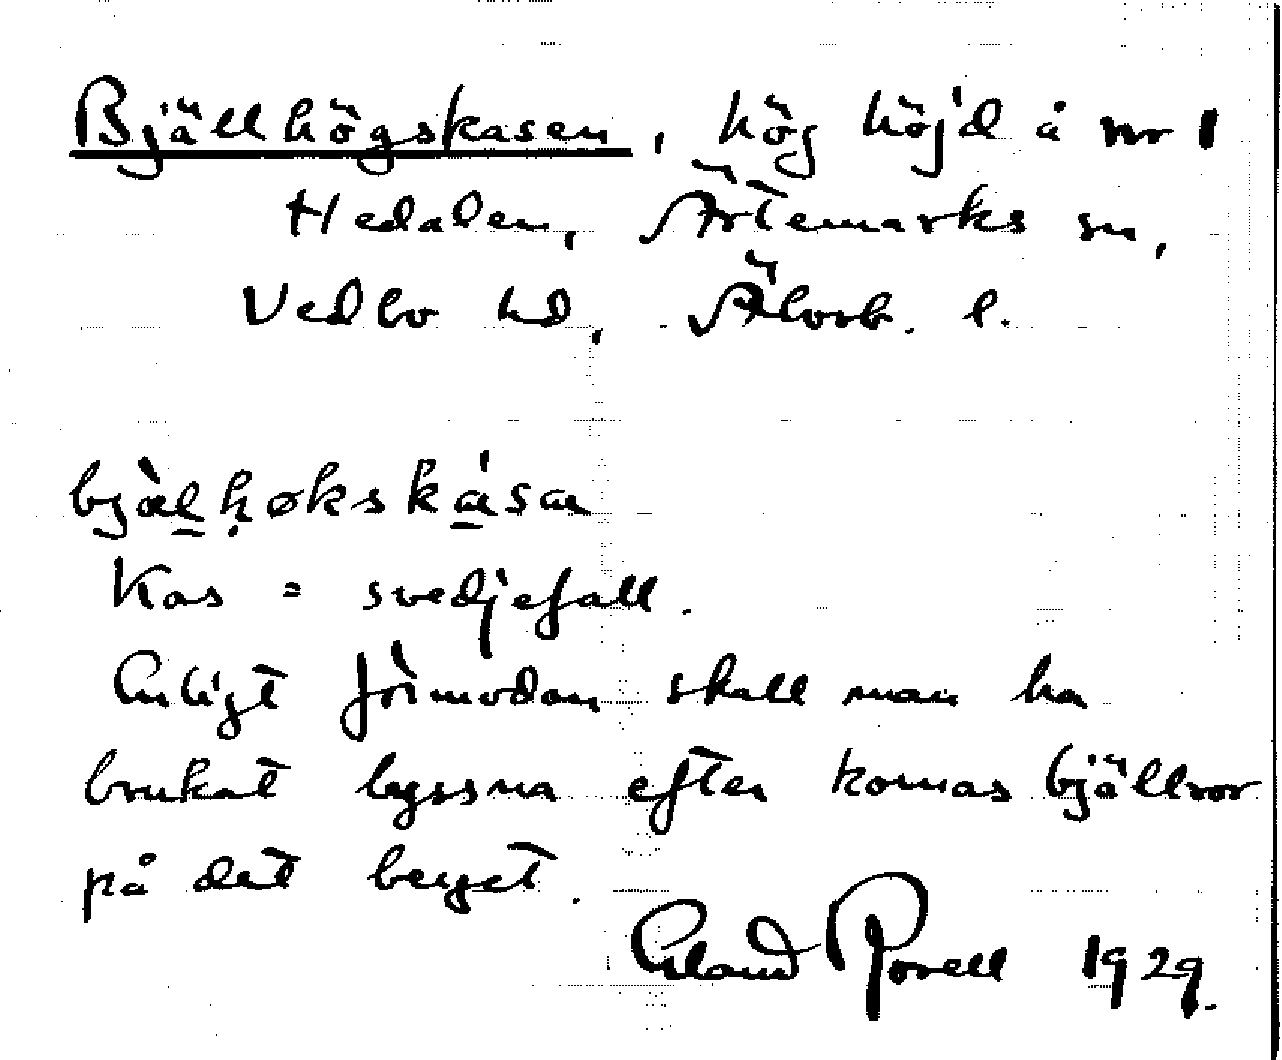 Bjällhögskasen, hög höjd å nr 1
Hedalen, Ärtemarks sn,
Vedbo hd, Älvsb. l.
bjæ̀l̠ḥøkská̠san
Kas = svedjefall.
Enligt förmodan skall man ha
brukat lyssna efter kornas bjällror
på det berget.
Erland Rosell 1929.